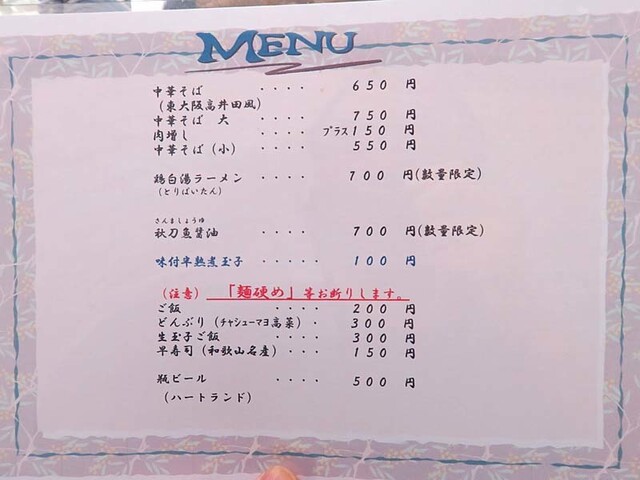 MENU
中華そば ・・・・ 650 円
(東大阪高井田風)
中華そば 大 ・・・・ 750 円
肉増し ・・・・ プラス150 円
中華そば(小) ・・・・ 550 円
鶏白湯ラーメン ・・・・ 700 円(数量限定)
(とりぱいたん)
さんましょうゆ
秋刀魚醤油 ・・・・・ 700 円(数量限定)
味付半熟煮玉子 ・・・・・ 100 円
(注意) 「麺硬め」等お断りします。
ご飯 ・・・・ 200 円
どんぶり(チャシューマヨ高菜)・ 300 円
生玉子ご飯 ・・・・ 300 円
早寿司(和歌山名産) ・・・ 150 円
瓶ビール ・・・・ 500 円
(ハートランド)